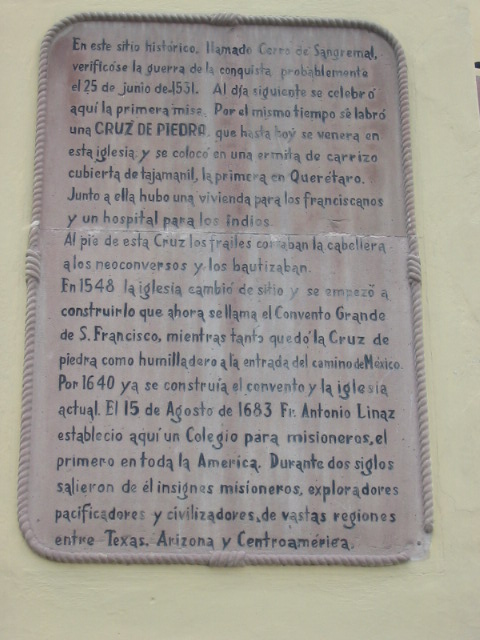 En este sitio histórico, llamado Cerro de Sangremal,
verificóse la guerra de la conquista probablemente
el 25 de junio de 1531. Al día siguiente se celebró
aquí la primera misa. Por el mismo tiempo se labró
una CRUZ DE PIEDRA, que hasta hoy se venera en
esta iglesia y se colocó en una ermita de carrizo
cubierta de tajamanil, la primera en Querétaro.
Junto a ella hubo una vivienda para los franciscanos
y un hospital para los indios
Al pie de esta Cruz los frailes cortaban la cabellera
a los neoconversos y los bautizaban.
En 1548 la iglesia cambió de sitio y se empezó a
construir lo que ahora se llama el Convento Grande
de S. Francisco, mientras tanto quedó la Cruz de
piedra como humilladero a la entrada del camino de México.
Por 1640 ya se construía el convento y la iglesia
actual. El 15 de Agosto de 1683 Fr. Antonio Linaz
establecio aquí un Colegio para misioneros, el
primero en toda la America. Durante dos siglos
salieron de él insignes misioneros, exploradores
pacificadores y civilizadores, de vastas regiones
entre Texas, Arizona y Centroamérica.